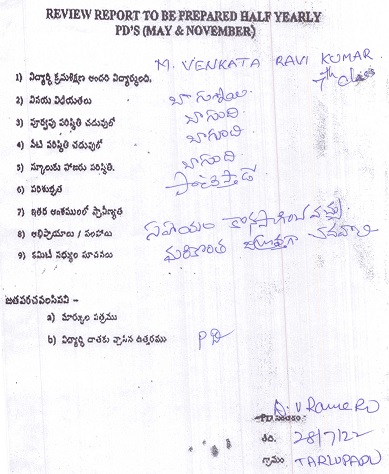 REVIEW REPORT TO BE PREPARED HALF YEARLY
PD'S (MAY & NOVEMBER)
M. VENKATA RAVI KUMAR
7th class
1) విద్యార్థి క్రమశిక్షణ అందరి విద్యార్థులది.
2) వినయ విధేయతలు బాగున్నాయి.
3) పూర్వపు పరిస్థితి చదువులో బాగుంది
4) నేటి పరిస్థితి చదువులో బాగుంది
5) స్కూలుకు హాజరు పరిస్థితి. బాగుంది
6) పరిశుభ్రత పాటిస్తాడు
7) ఇతర అంశములలో ప్రావీణ్యత
8) అభిప్రాయాలు / సలహాలు సహాయం కొనసాగించవచ్చు
9) కమిటీ సభ్యుల సూచనలు మరికొంత చదవాలి
జతపరచవలసినవి -
a) మార్కుల పత్రము
b) విద్యార్థి దాతకు వ్రాసిన ఉత్తరము PD
PD సంతకం
తేది. 28/7/22
గ్రామం TARLUPADU